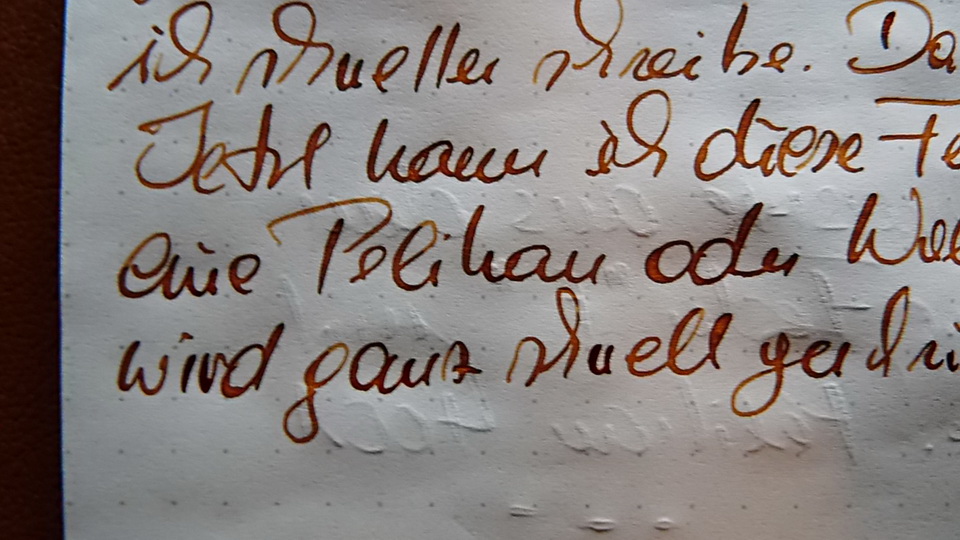 ich schneller schreibe. Da
Jetzt kann ich diese Fe
eine Pelikan oder
wird ganz schnell geschri